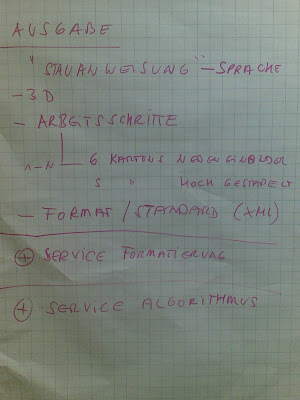 AUSGABE
"STAUANWEISUNG" - SPRACHE
- 3D
- ARBEITSSCHRITTE
1-N 6 KARTONS NEBENEINANDER
5 " HOCH GESTAPELT
- FORMAT / STANDARD (XML)
+ SERVICE FORMATIERUNG
+ SERVICE ALGORITHMUS